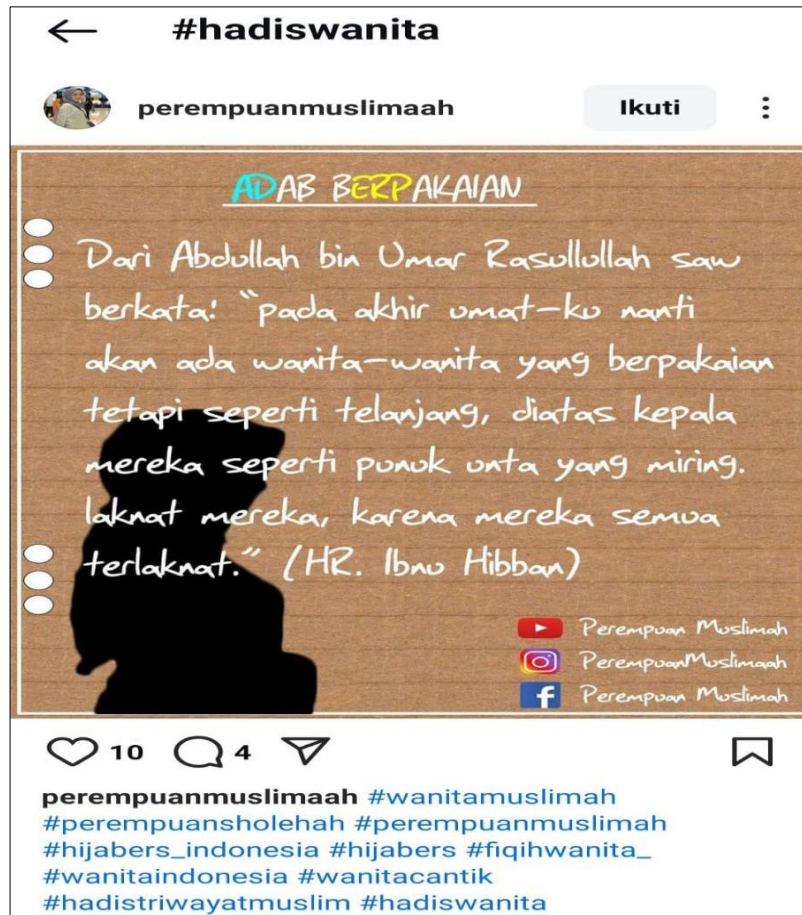 #hadiswanita
perempuanmuslimaah
Ikuti
ADAB BERPAKAIAN
Dari Abdullah bin Umar Rasullullah saw
berkata: "pada akhir umat-ku nanti
akan ada wanita-wanita yang berpakaian
tetapi seperti telanjang, diatas kepala
mereka seperti punuk unta yang miring.
laknat mereka, karena mereka semua
terlaknat." (HR. Ibnu Hibban)
Perempuan Muslimah
PerempuanMuslimaah
Perempuan Muslimah
10 4
perempuanmuslimaah #wanitamuslimah
#perempuansholehah #perempuanmuslimah
#hijabers_indonesia #hijabers #fiqihwanita_
#wanitaindonesia #wanitacantik
#hadistriwayatmuslim #hadiswanita